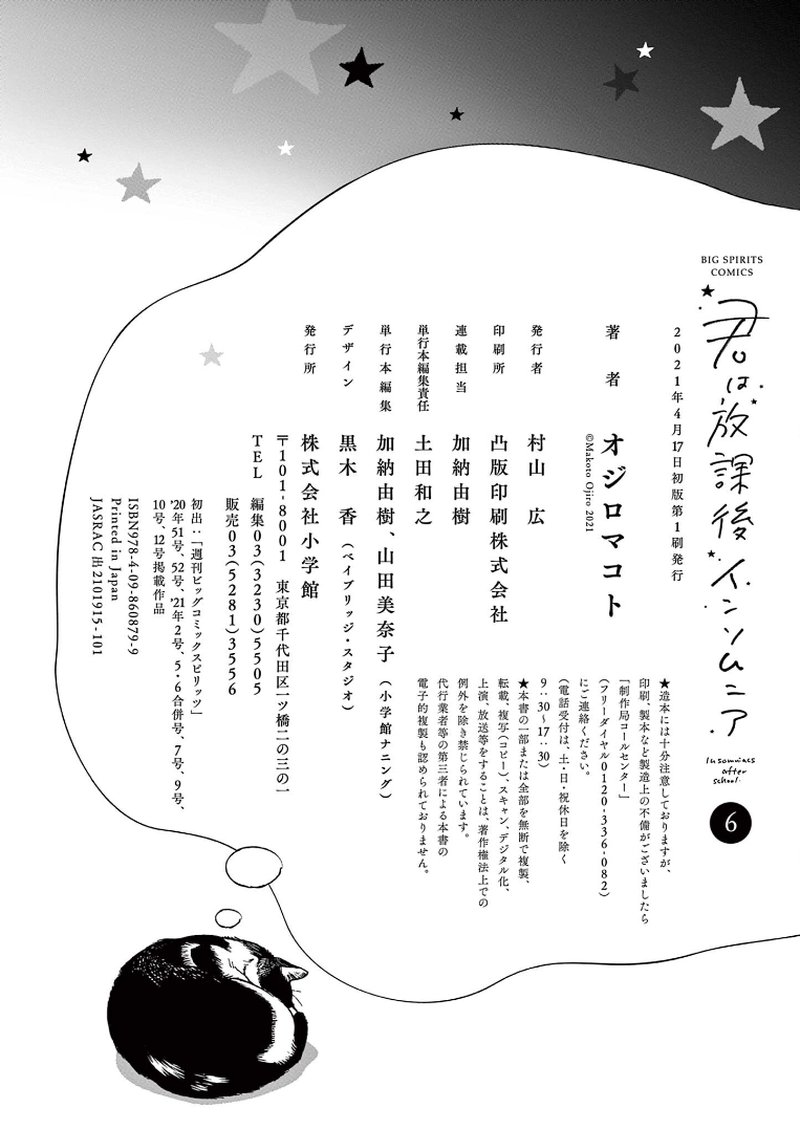 BIG SPIRITS
COMICS
君は放課後インソムニア
Insomniacs
after
school
6
2021年4月17日初版第1刷発行
著者 オジロマコト
©Makoto Ojiro 2021
発行者 村山 広
印刷所 凸版印刷株式会社
連載担当 加納由樹
単行本編集責任 土田和之
単行本編集 加納由樹、山田美奈子(小学館ナニング)
デザイン 黒木 香(ベイブリッジ・スタジオ)
発行所 株式会社小学館
〒101-8001 東京都千代田区一ツ橋二の三の一
TEL 編集03(3230)5505
販売03(5281)3556
初出:「週刊ビッグコミックスピリッツ」
'20年51号、52号、'21年2号、5・6合併号、7号、9号、
10号、12号掲載作品
ISBN978-4-09-860879-9
Printed in Japan
JASRAC 出 2101915-101
★造本には十分注意しておりますが、
印刷、製本など製造上の不備がございましたら
「制作局コールセンター」
(フリーダイヤル0120-336-082)
にご連絡ください。
(電話受付は、土・日・祝休日を除く
9:30〜17:30)
★本書の一部または全部を無断で複製、
転載、複写(コピー)、スキャン、デジタル化、
上演、放送等をすることは、著作権法上での
例外を除き禁じられています。
代行業者等の第三者による本書の
電子的複製も認められておりません。